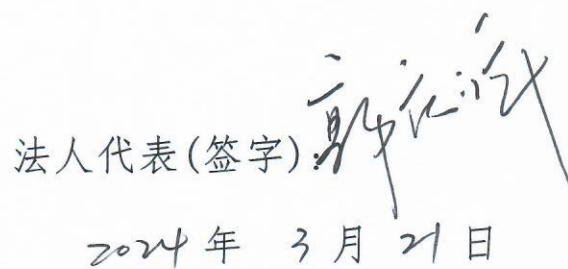 法人代表(签字):郭
2024年 3月 21日